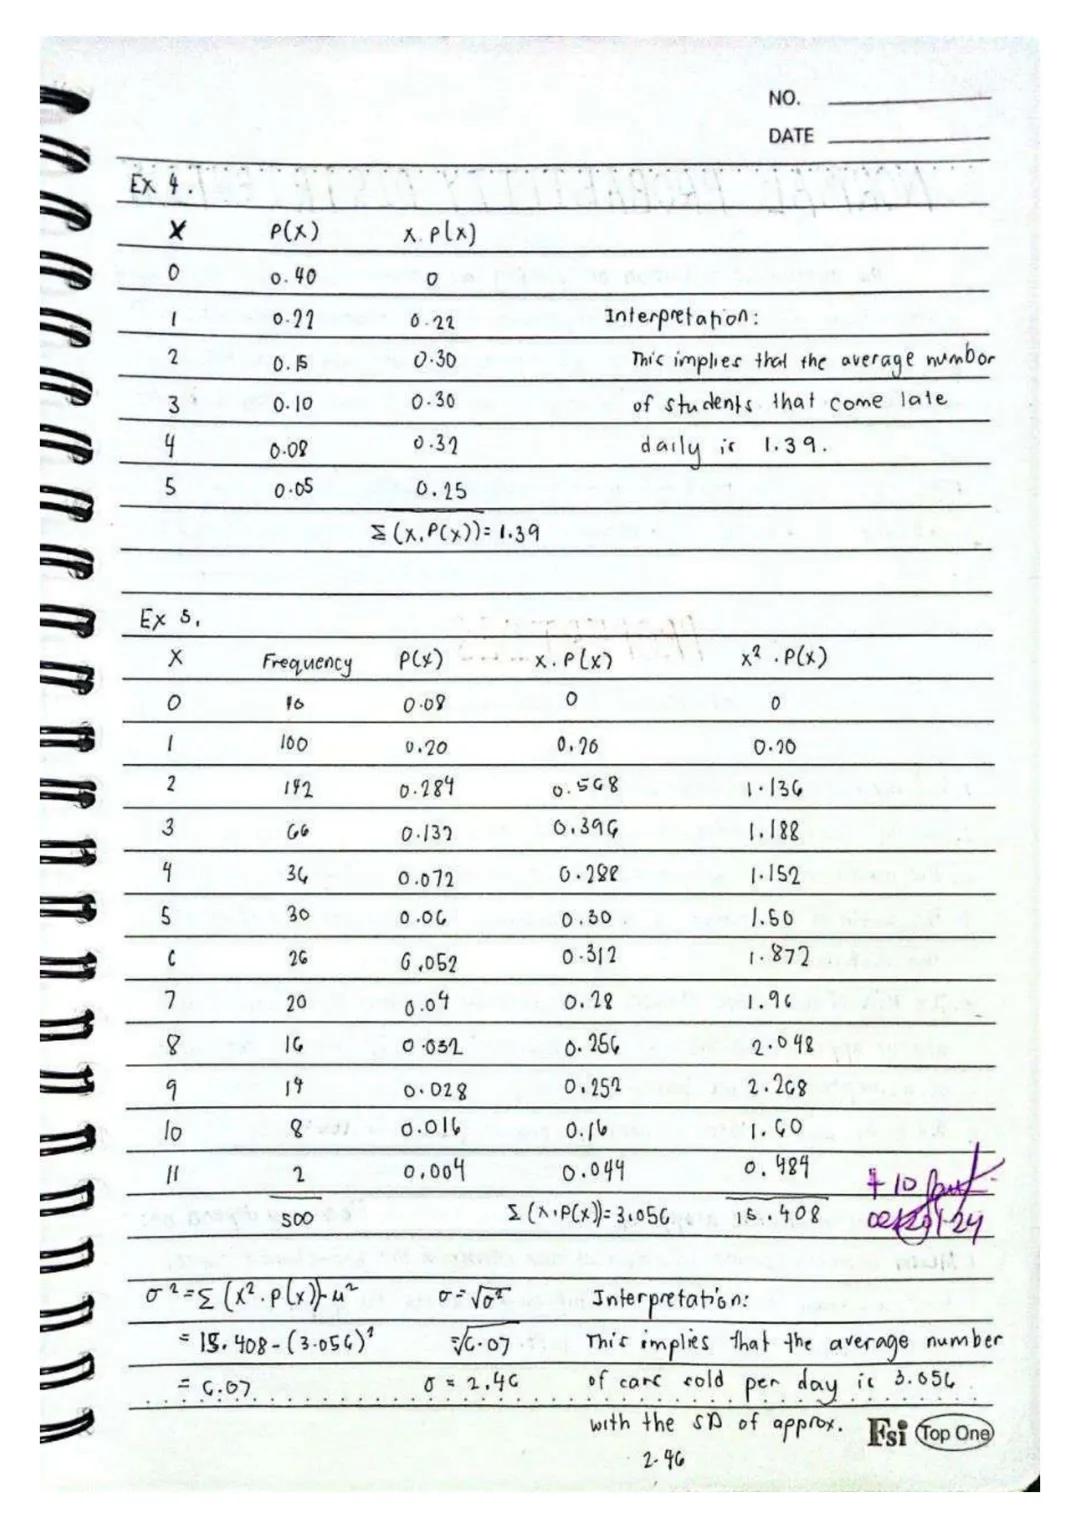 NO.
DATE
Ex 4.
X P(X) X. P(X)
0 0.40 0
1 0.22 0.22 Interpretation:
2 0.15 0.30 This implies that the average number
3 0.10 0.30 of students that come late
4 0.08 0.32 daily is 1.39.
5 0.05 0.25
Σ(X.P(X))= 1.39
Ex 5.
X Frequency P(X) X. P(X) X² . P(X)
0 0.08 0 0
1 100 0.20 0.20 0.20
2 142 0.284 0.568 1.136
3 66 0.132 0.396 1.188
4 36 0.072 0.288 1.152
5 30 0.06 0.30 1.50
6 26 0.052 0.312 1.872
7 20 0.04 0.28 1.96
8 16 0.032 0.256 2.048
9 14 0.028 0.252 2.268
10 8 0.016 0.16 1.60
11 2 0.004 0.044 0.484
500 Σ(X.P(X))= 3.056 15.408
+10
σ²=Σ(X².P(X))-μ² σ=√σ² Interpretation:
= 15.408-(3.056)² =√6.07 This implies that the average number
= 6.07 σ = 2.46 of cars sold per day is 3.056
with the SD of approx.
2.46
Fsi Top One